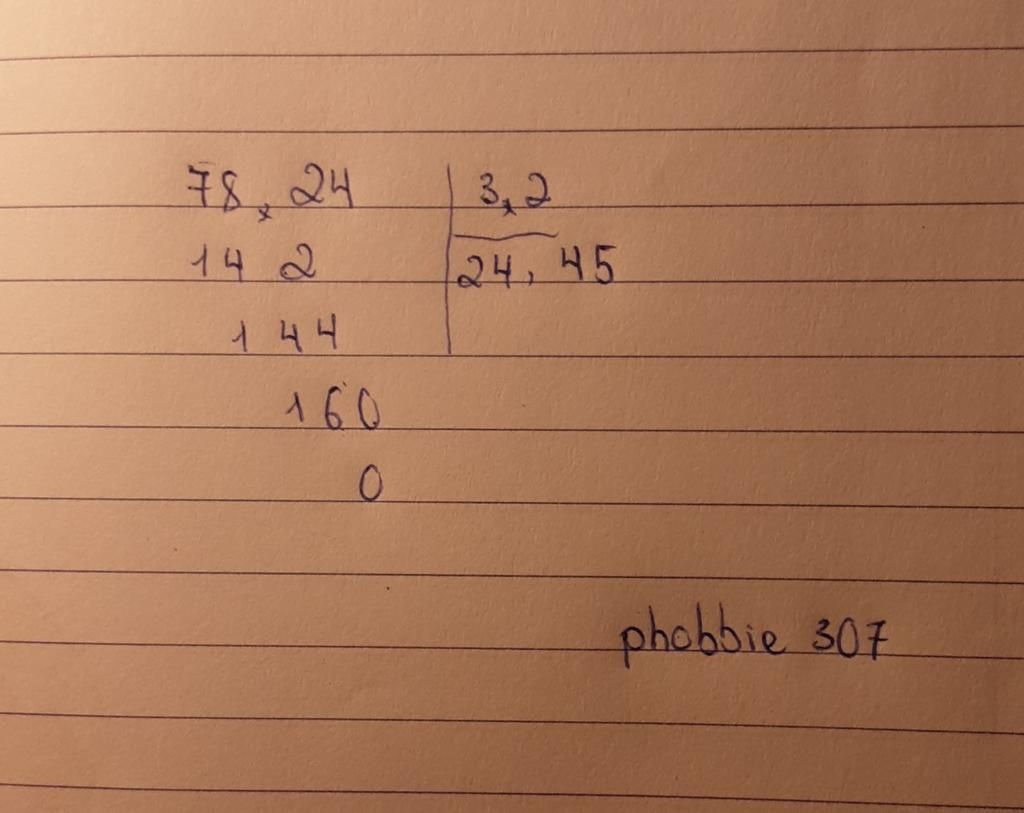 78,24 3,2
14 2 24,45
1 44
160
0
phobbie 307